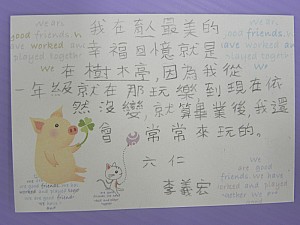 We are
good friends. We
have worked and
played together
我在育人最美的
幸福回憶就是
在樹水亭,因為我從
一年級就在那玩樂到現在依
然沒變,就算畢業後,我還
會常常來玩的。
六仁
李義宏
We
are good
friends. We have
worked and played
together